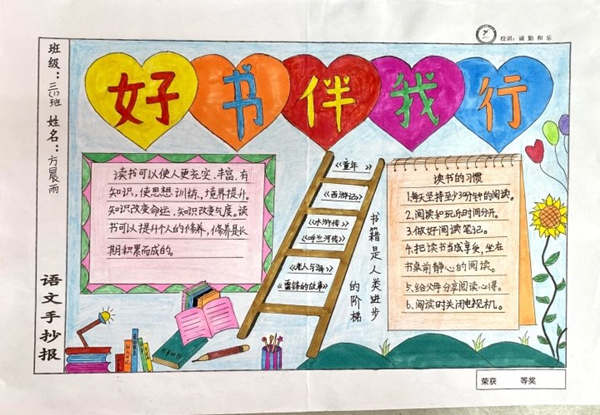 校训：诚 勤 和 乐
班级：三(1)班 姓名：方晨雨
语文手抄报
好书伴我行
读书可以使人更充实、丰富、有
知识，使思想训练、境界提升。
知识改变命运，知识改变气度。读
书可以提升个人的修养，修养是长
期积累而成的。
《童年》
《西游记》
《水浒传》
《呼兰河传》
《老人与海》
《雷锋的故事》
书籍是人类进步
的阶梯
读书的习惯
1.每天坚持至少30分钟的阅读。
2.阅读和玩乐时间分开。
3.做好阅读笔记。
4.把读书当成享受，坐在
书桌前静心的阅读。
5.给父母分享阅读心得。
6.阅读时关闭电视机。
荣获 等奖